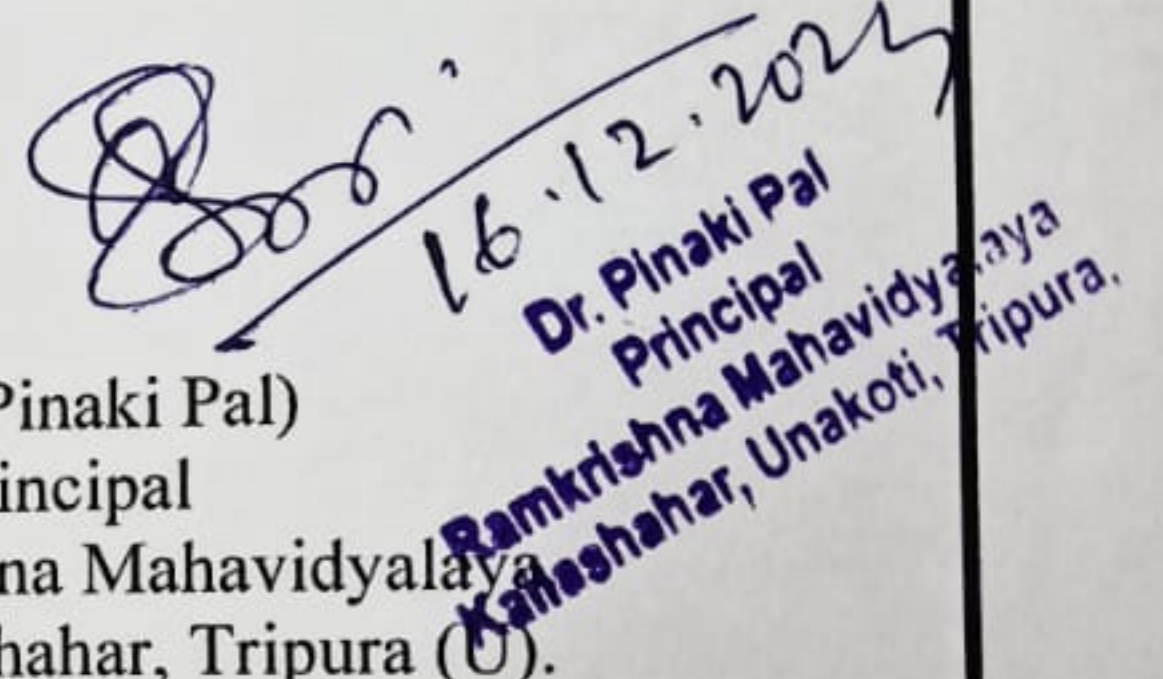 16.12.202
Dr. Pinaki Pal
Principal
Ramkrishna Mahavidyalaya
Kailashahar, Unakoti, Tripura.
Pinaki Pal)
incipal
na Mahavidyalaya
hahar, Tripura (U).